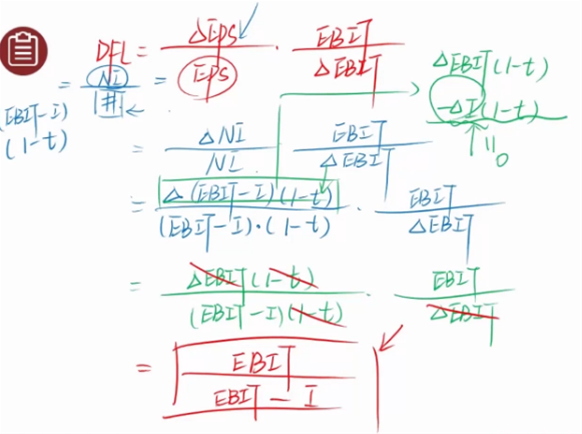 DFL = ΔEPS / EPS · EBIT / ΔEBIT
= NI / #
(EBIT-I)
(1-t)
ΔEBIT(1-t)
-ΔI(1-t)
=0
= ΔNI / NI EBIT / ΔEBIT
= Δ(EBIT-I)(1-t) / (EBIT-I)·(1-t) · EBIT / ΔEBIT
= ΔEBIT(1-t) / (EBIT-I)(1-t) · EBIT / ΔEBIT
= EBIT / EBIT-I